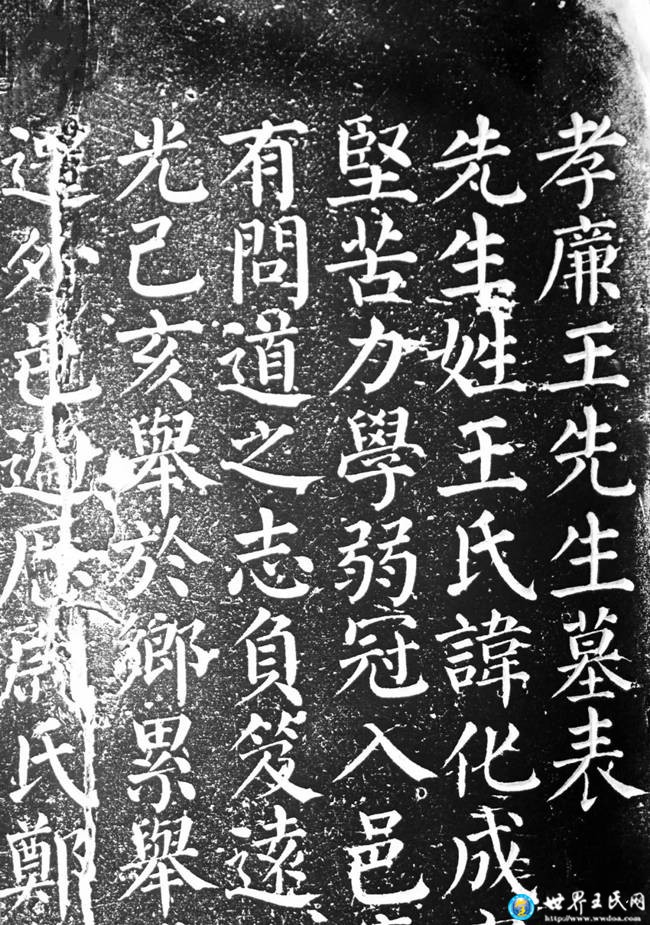 孝廉王先生墓表
先生姓王氏諱化成
堅苦力學弱冠入邑
有問道之志負笈遠
光己亥舉於鄉累舉
選外邑遍厯尉氏鄭
世界王氏网
http://www.wwdoa.com